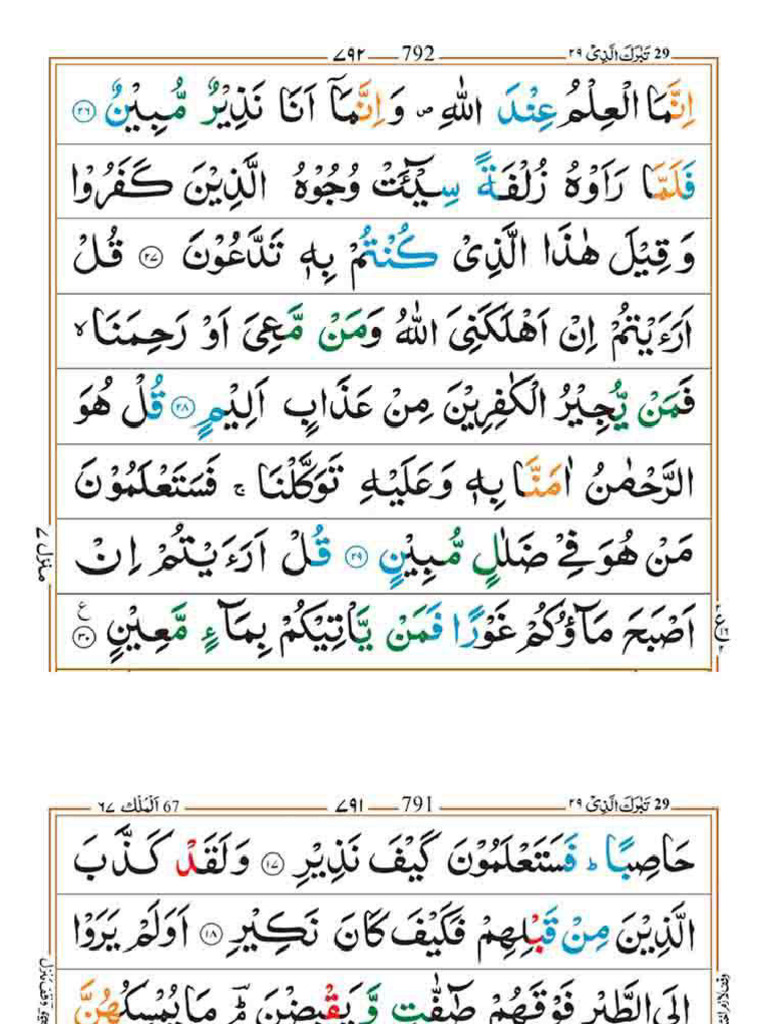 29 تَبٰرَكَ الَّذِیْ ۲۹ 792 ۷۹۲
اِنَّمَا الْعِلْمُ عِنْدَ اللّٰهِ ۪ وَ اِنَّمَاۤ اَنَا نَذِیْرٌ مُّبِیْنٌ ۝۲۶
فَلَمَّا رَاَوْهُ زُلْفَةً سِیْٓـَٔتْ وُجُوْهُ الَّذِیْنَ كَفَرُوْا
وَ قِیْلَ هٰذَا الَّذِیْ كُنْتُمْ بِهٖ تَدَّعُوْنَ ۝۲۷ قُلْ
اَرَءَیْتُمْ اِنْ اَهْلَكَنِیَ اللّٰهُ وَمَنْ مَّعِیَ اَوْ رَحِمَنَا ۙ
فَمَنْ یُّجِیْرُ الْكٰفِرِیْنَ مِنْ عَذَابٍ اَلِیْمٍ ۝۲۸ قُلْ هُوَ
الرَّحْمٰنُ اٰمَنَّا بِهٖ وَعَلَیْهِ تَوَكَّلْنَا ۚ فَسَتَعْلَمُوْنَ
مَنْ هُوَ فِیْ ضَلٰلٍ مُّبِیْنٍ ۝۲۹ قُلْ اَرَءَیْتُمْ اِنْ
اَصْبَحَ مَآؤُكُمْ غَوْرًا فَمَنْ یَّاْتِیْكُمْ بِمَآءٍ مَّعِیْنٍ ۝۳۰ ع
منزل ۷
29 تَبٰرَكَ الَّذِیْ ۲۹ 791 ۷۹۱ 67 اَلْمُلْك ۶۷
حَاصِبًا ؕ فَسَتَعْلَمُوْنَ كَیْفَ نَذِیْرِ ۝۱۷ وَلَقَدْ كَذَّبَ
الَّذِیْنَ مِنْ قَبْلِهِمْ فَكَیْفَ كَانَ نَكِیْرِ ۝۱۸ اَوَلَمْ یَرَوْا
اِلَی الطَّیْرِ فَوْقَهُمْ صٰٓفّٰتٍ وَّیَقْبِضْنَ ؔۘ مَا یُمْسِكُهُنَّ